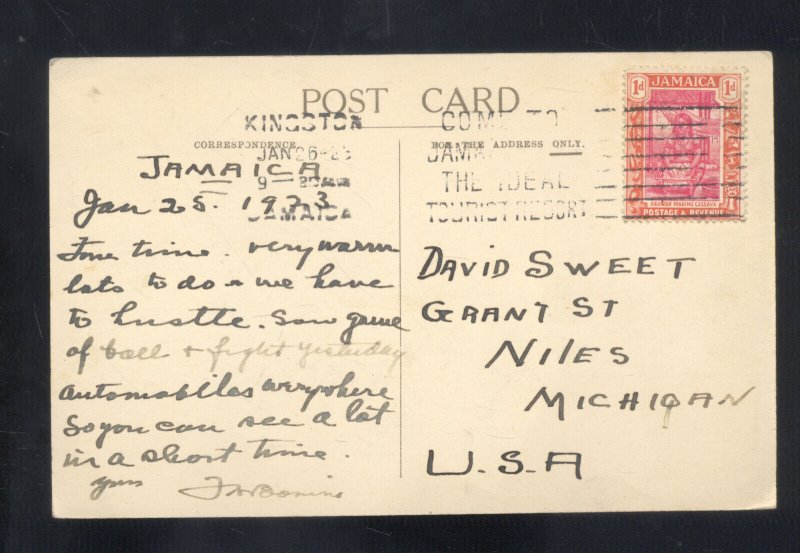 POST CARD
CORRESPONDENCE
FOR THE ADDRESS ONLY.
KINGSTON
JAN 26
9
JAMAICA
COME TO
JAMA
THE IDEAL
TOURIST RESORT
JAMAICA
1d 1d
ARAWAK MAKING CASSAVA
POSTAGE & REVENUE
JAMAICA
Jan 25. 1923
Fine time. very warm
lots to do & we have
to hustle. Saw game
of ball & fight yesterday
automobiles everywhere
So you can see a lot
in a short time.
yours
DAVID SWEET
GRANT ST
NILES
MICHIGAN
U.S.A